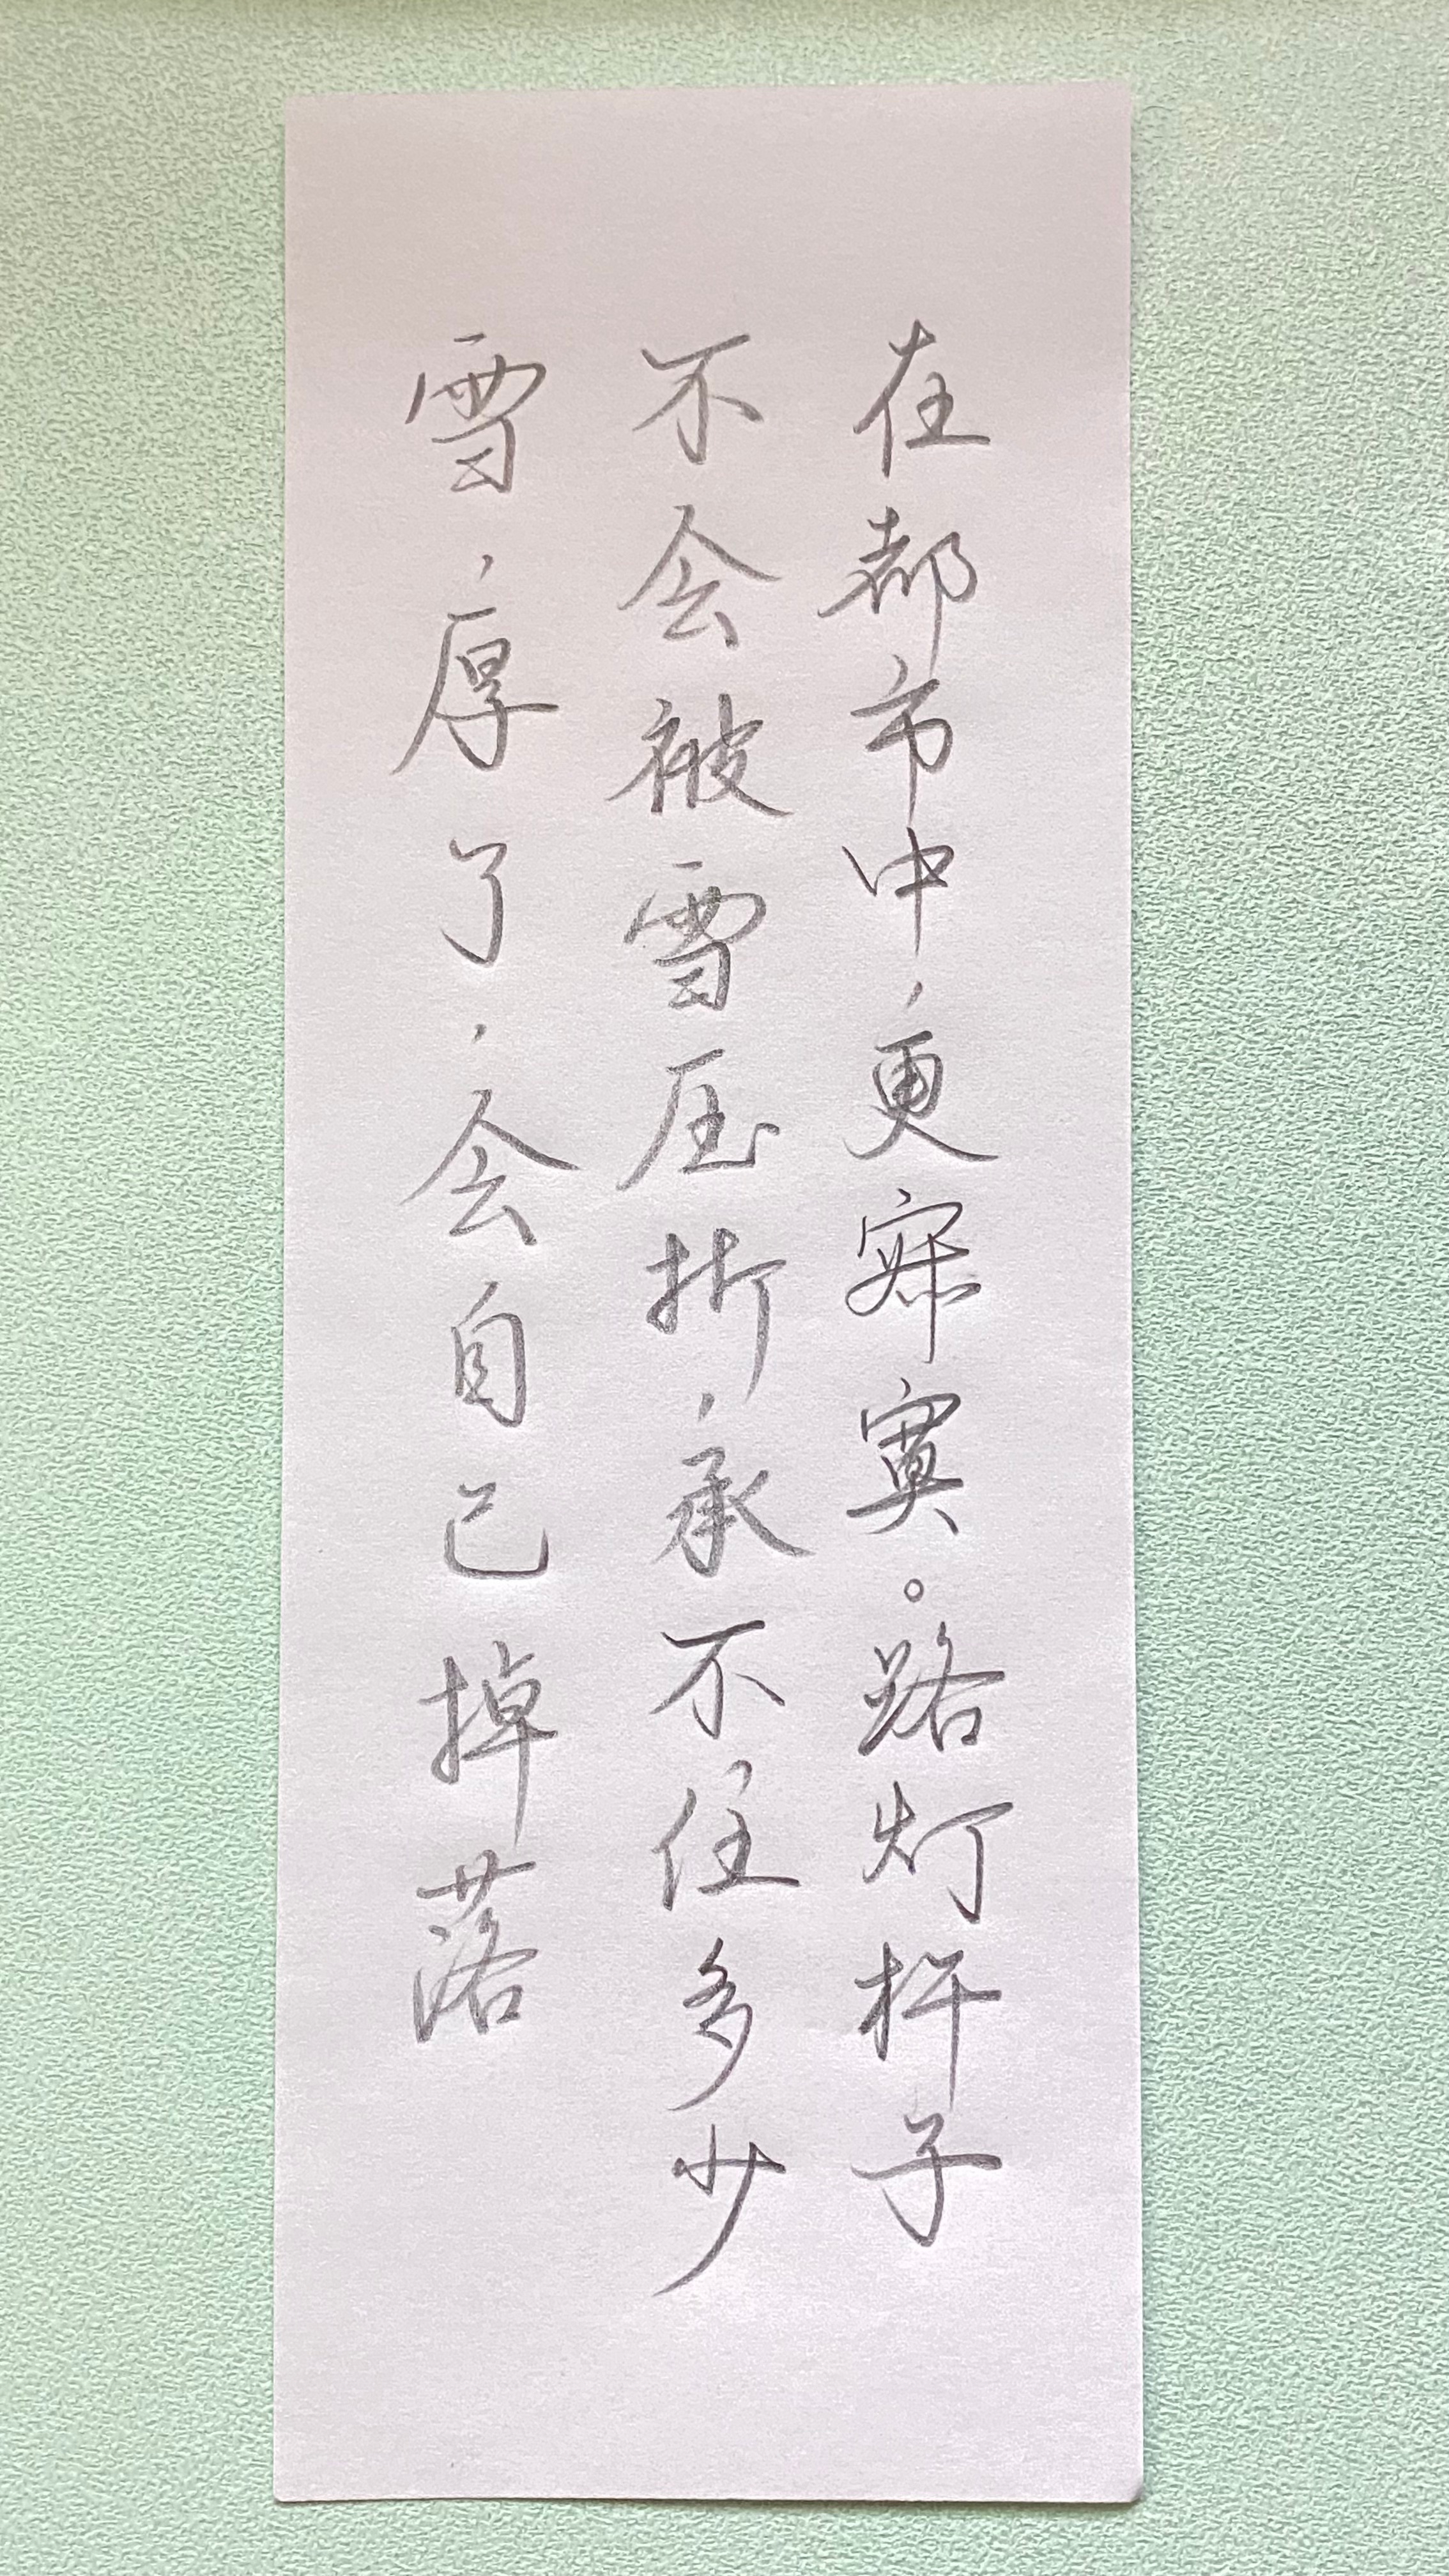 在都市中，更寂寞。路灯杆子
不会被雪压折，承不住多少
雪，厚了，会自己掉落